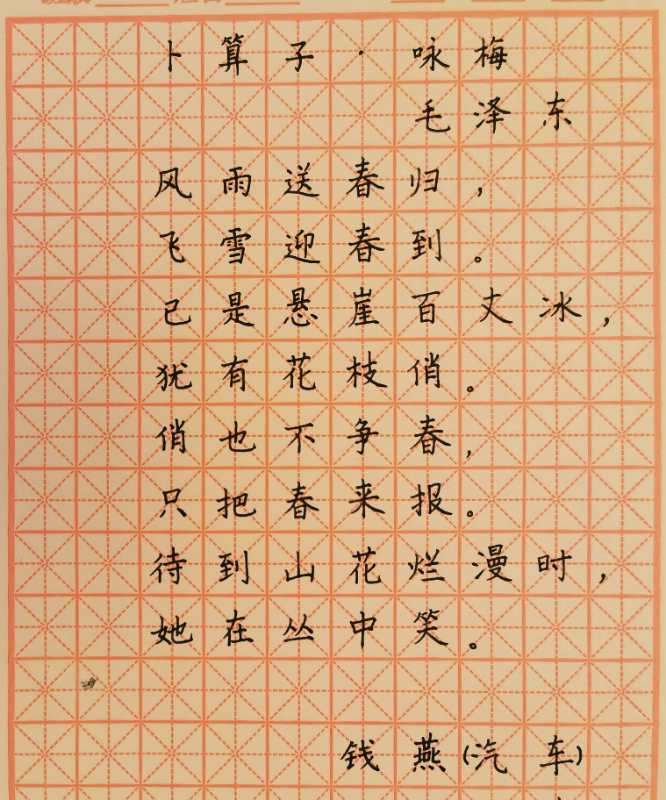 卜算子·咏梅
毛泽东
风雨送春归，
飞雪迎春到。
已是悬崖百丈冰，
犹有花枝俏。
俏也不争春，
只把春来报。
待到山花烂漫时，
她在丛中笑。
钱燕(汽车)